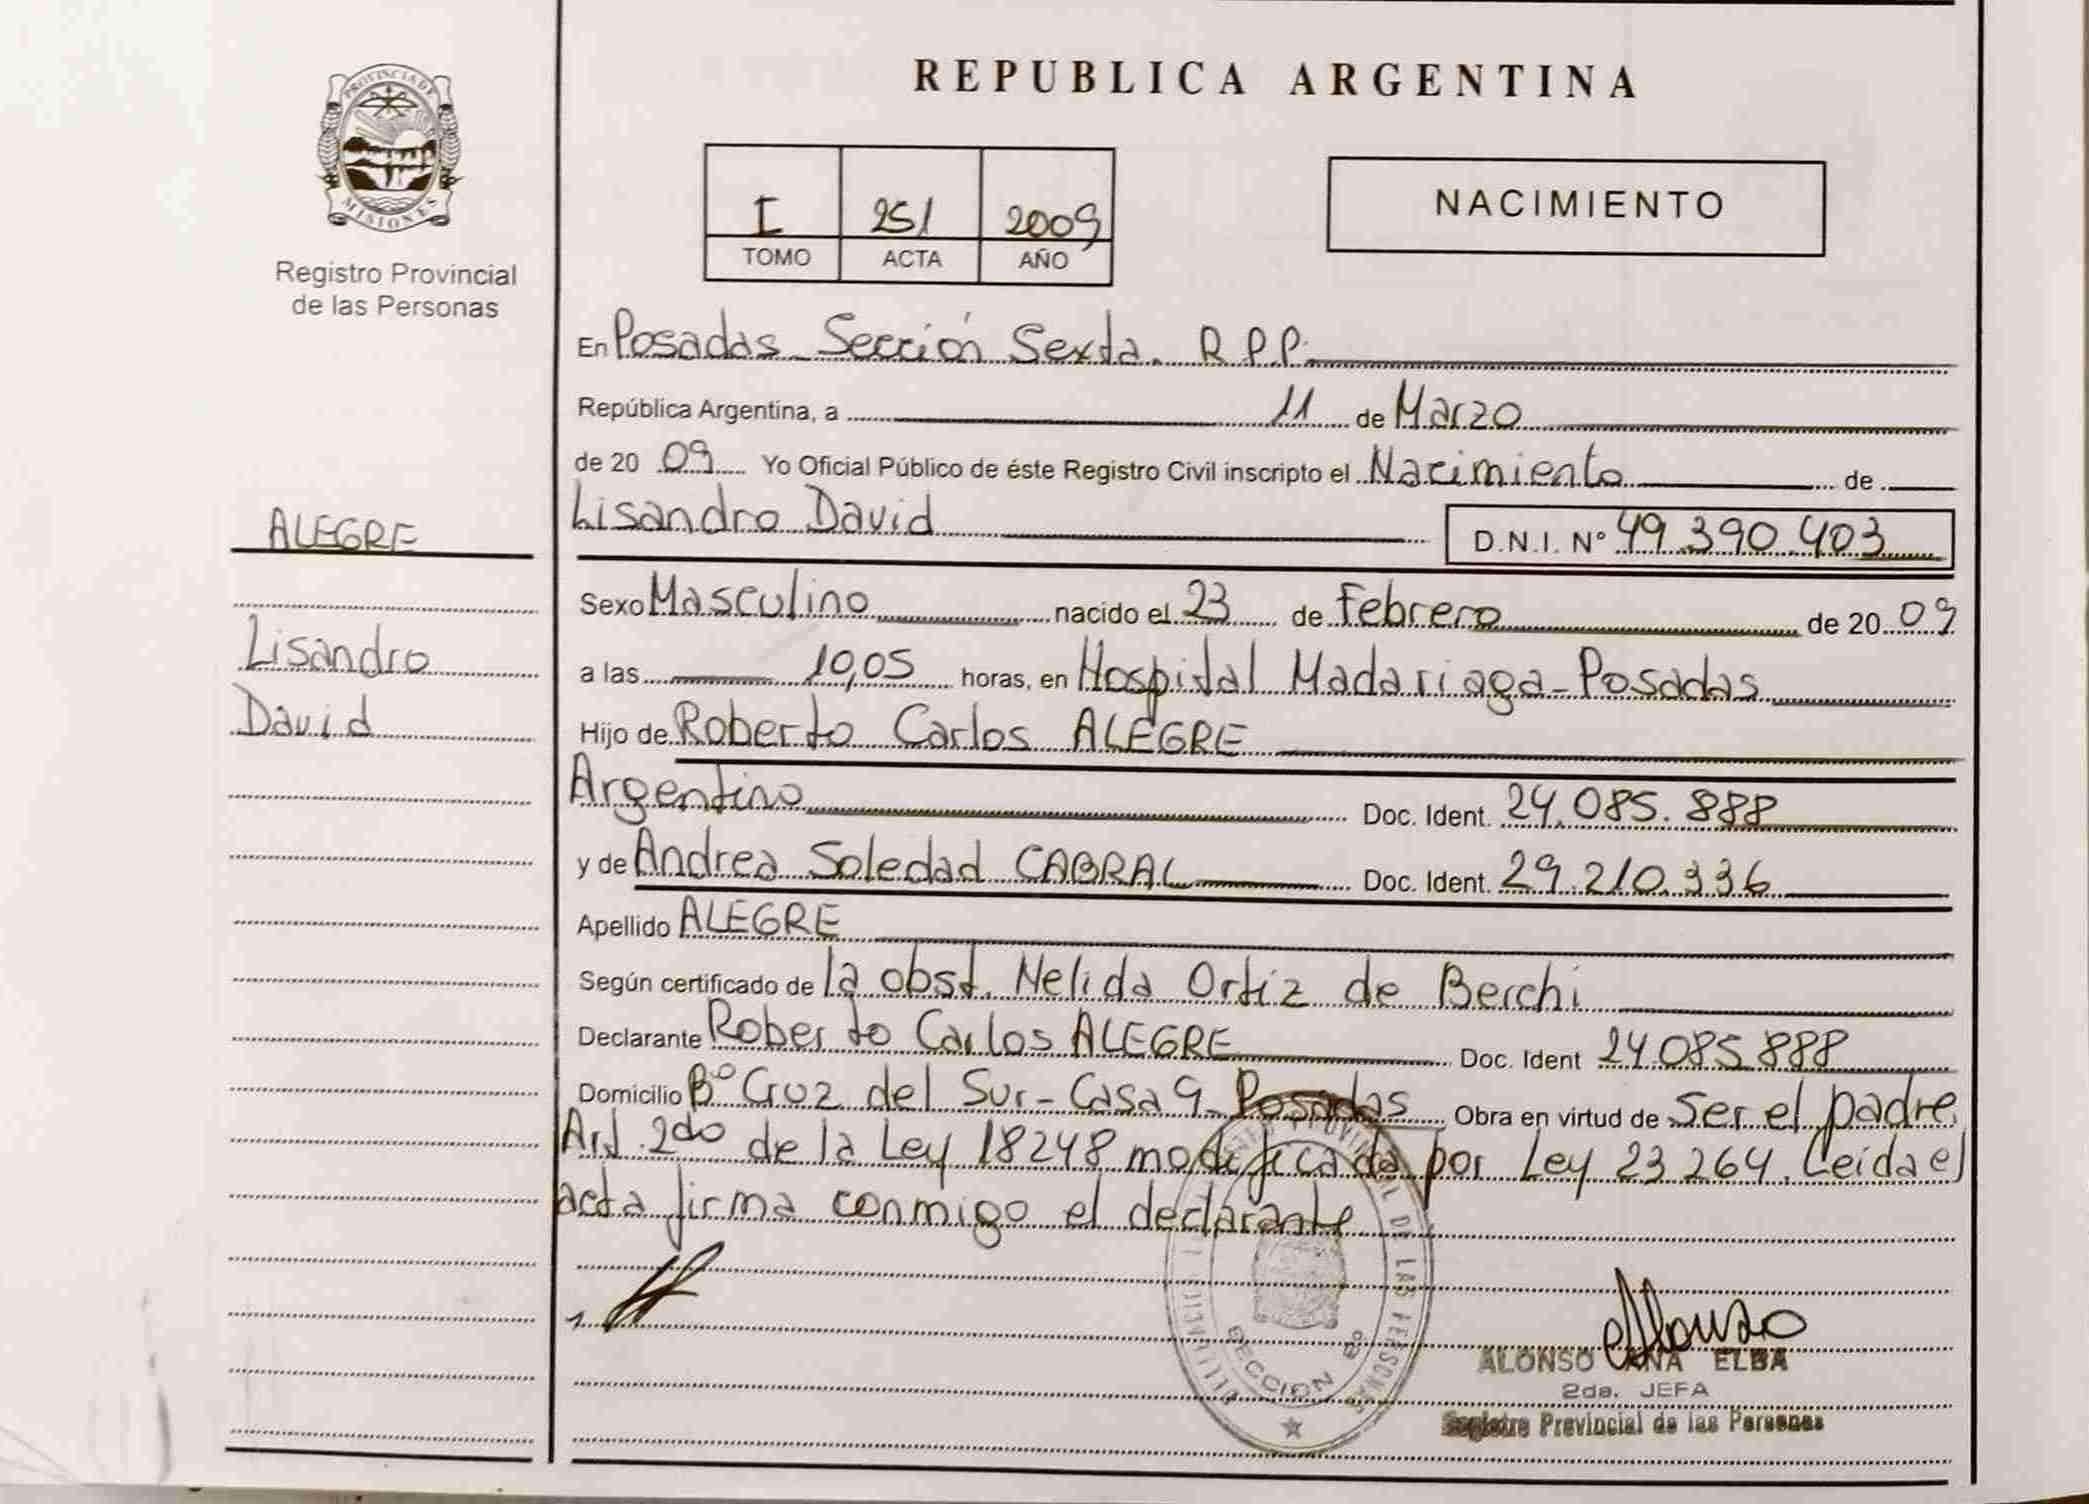 REPUBLICA ARGENTINA
PROVINCIA DE
MISIONES
Registro Provincial
de las Personas
I 251 2009
TOMO ACTA AÑO
NACIMIENTO
En Posadas Sección Sexta. R.P.P.
República Argentina, a 11 de Marzo
de 20 09 Yo Oficial Público de éste Registro Civil inscripto el Nacimiento de
Lisandro David D.N.I. Nº 49.390.403
ALEGRE
Lisandro
David
Sexo Masculino nacido el 23 de Febrero de 20 09
a las 10,05 horas, en Hospital Madariaga - Posadas
Hijo de Roberto Carlos ALEGRE
Argentino Doc. Ident. 24.085.888
y de Andrea Soledad CABRAL Doc. Ident. 29.210.336
Apellido ALEGRE
Según certificado de la obst. Nelida Ortiz de Berchi
Declarante Roberto Carlos ALEGRE Doc. Ident 24.085.888
Domicilio Bº Cruz del Sur - Casa 9 - Posadas Obra en virtud de Ser el padre
Art. 2do de la Ley 18248 modificada por Ley 23.264. Leida el
acta firma conmigo el declarante
ALONSO ANA ELBA
2da. JEFA
Registro Provincial de las Personas
DE LAS PERSONAS
SECCION 6º